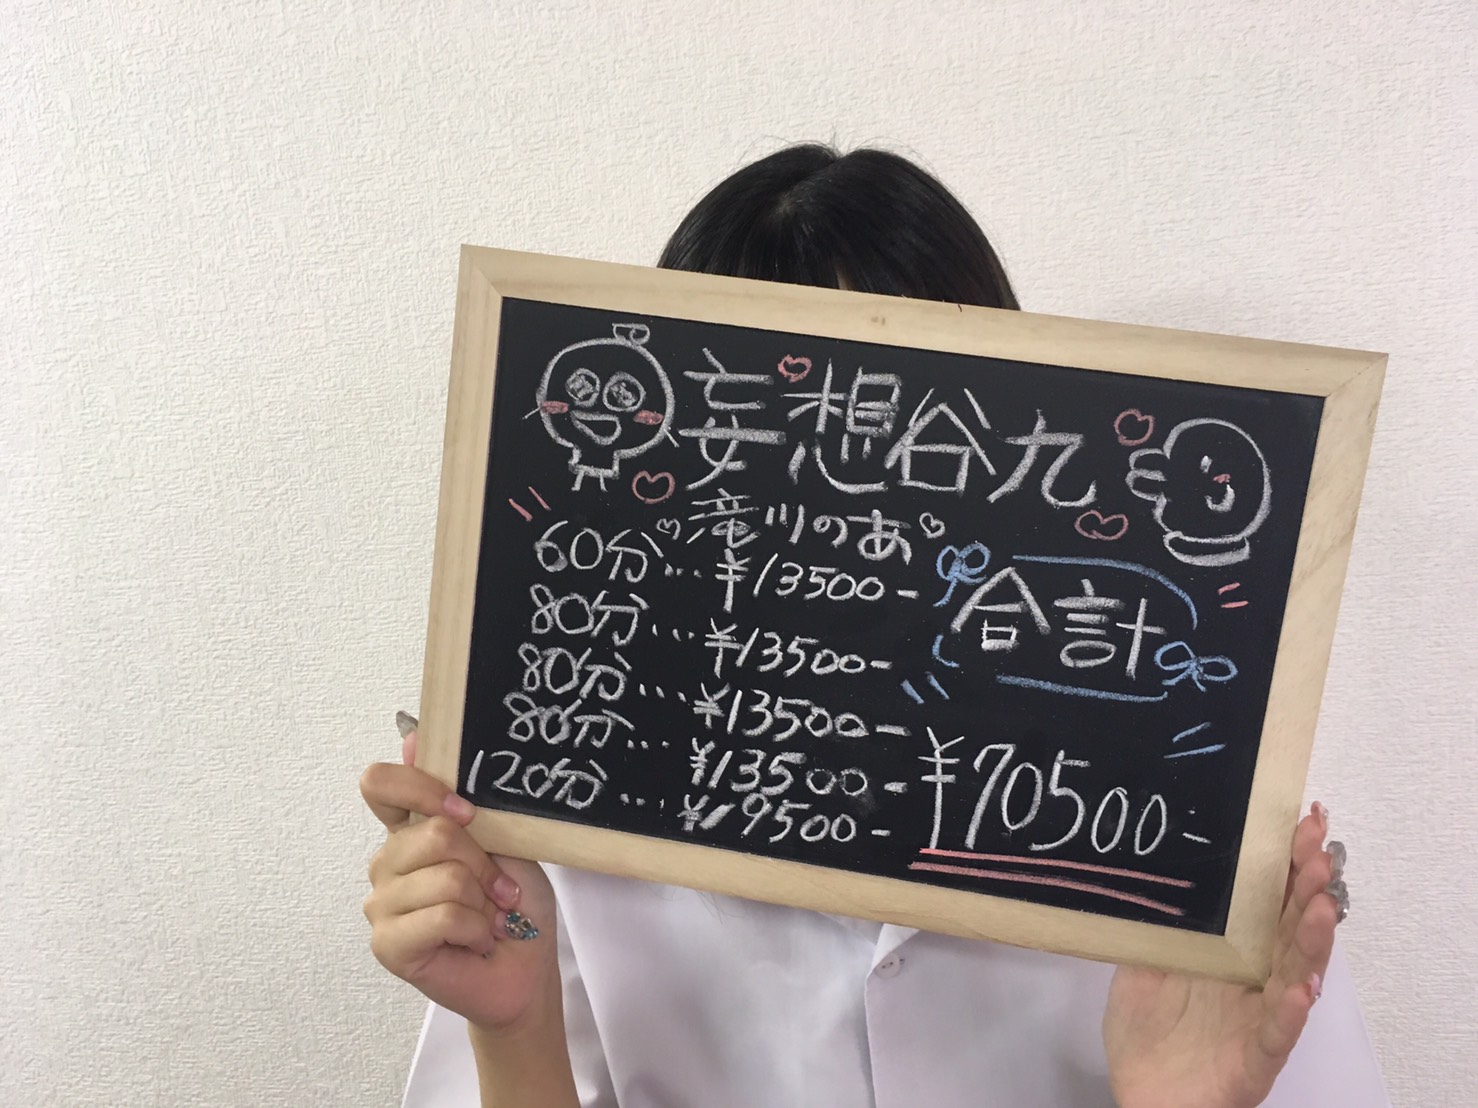 妄想谷九
滝川のあ
60分…¥13500-
80分…¥13500-
80分…¥13500-
80分…¥13500-
120分…¥19500-
合計
¥70500-